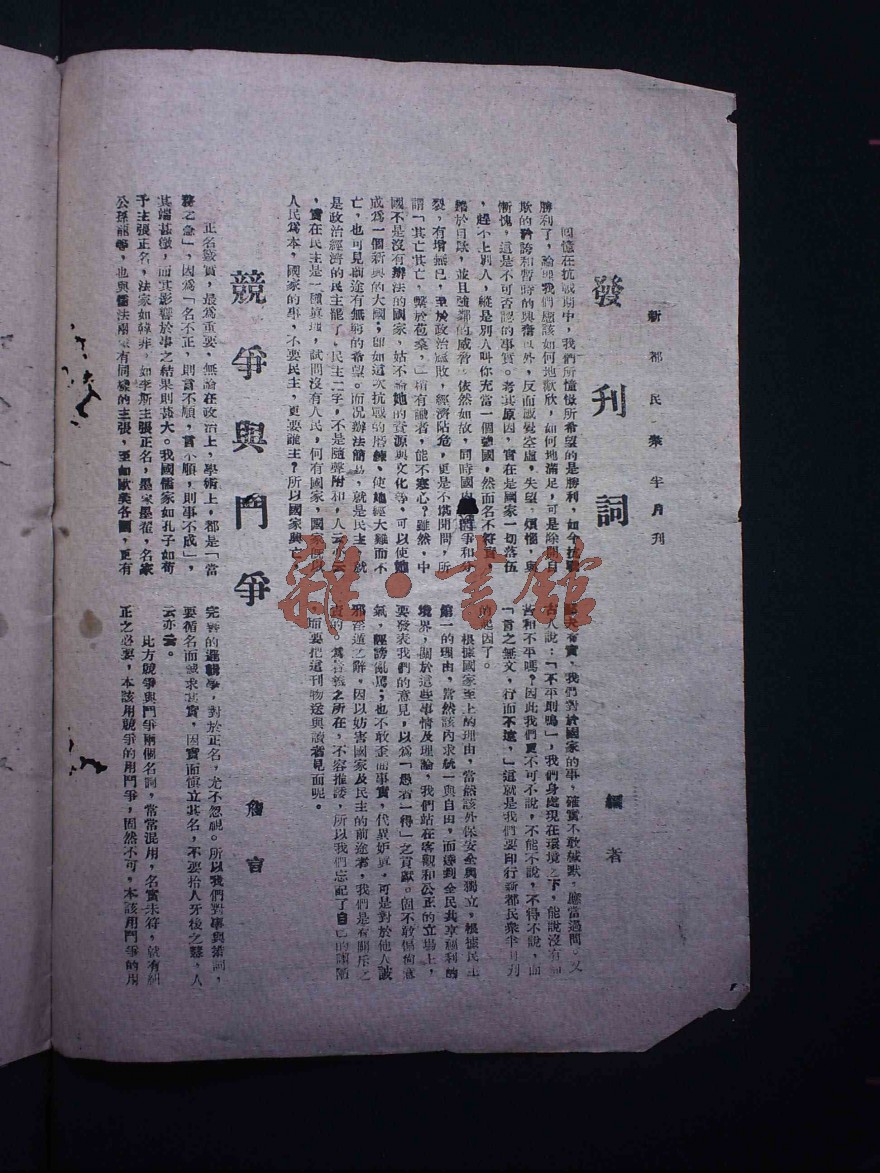 新都民衆半月刊
發刊詞
編者
回憶在抗戰期中，我們所憧憬所希望的是勝利，如今抗戰
勝利了，論理我們應該如何地歡欣，如何地滿足，可是除開自
欺的矜誇和暫時的興奮以外，反而感覺空虛，失望，煩惱，與
慚愧，這是不可否認的事實。考其原因，實在是國家一切落伍
，趕不上別人，縱是別人叫你充當一個強國，然而名不符實，
難於自欺，並且強鄰的威脅，依然如故，同時國內爭和分
裂，有增無已，至於政治腐敗，經濟阽危，更是不堪聞問，所
謂「其亡其亡，繫於苞桑，」稍有識者，能不寒心？雖然，中
國不是沒有辦法的國家，姑不論她的資源與文化等，可以使她
成爲一個新興的大國；卽如這次抗戰的磨鍊，使她經大難而不
亡，也可見前途有無窮的希望。而况辦法簡易，就是民主，就
是政治經濟的民主罷了。民主二字，不是隨聲附和，人云亦云
，實在民主是一種眞理，試問沒有人民，何有國家，國家旣以
人民爲本，國家的事，不要民主，更要誰主？所以國家興亡
匹夫有責，我們對於國家的事，確實不敢緘默，應當過問。又
古人說：「不平則鳴」，我們身處現在環境之下，能說沒有痛
苦和不平嗎？因此我們更不可不說，不能不說，不得不說，而
「言之無文，行而不遠，」這就是我們要印行新都民衆半月刊
的起因了。
根據國家至上的理由，當然該外保安全與獨立，根據民主
第一的理由，當然該內求統一與自由，而達到全民共享福利的
境界，關於這些事情及理論，我們站在客觀和公正的立場上，
要發表我們的意見，以爲「愚者一得」之貢獻。固不敢僞尙意
氣，輕謗亂罵；也不敢歪曲事實，代異妒眞，可是對於他人詖
邪淫遁之辭，因以妨害國家及民主的前途者，我們是有關斥之
責的。爲合義之所在，不容推諉，所以我們忘記了自己的謭陋
，而要把這刊物送與讀者見面呢。
競爭與鬥爭
詹言
正名覈實，最爲重要，無論在政治上，學術上，都是「當
務之急」，因爲「名不正，則言不順，言不順，則事不成」，
其端甚微，而其影響於事之結果則甚大。我國儒家如孔子如荀
子主張正名，法家如韓非，如李斯主張正名，墨家墨翟，名家
公孫龍等，也與儒法兩家有同樣的主張，至如歐美各國，更有
完善的邏輯學，對於正名，尤不忽視。所以我們對事與措詞，
要循名而誠求其實，因實而愼立其名，不要拾人牙後之慧，人
云亦云。
比方競爭與鬥爭兩個名詞，常常混用，名實未符，就有糾
正之必要，本該用競爭的用鬥爭，固然不可，本該用鬥爭的用
雜·書館